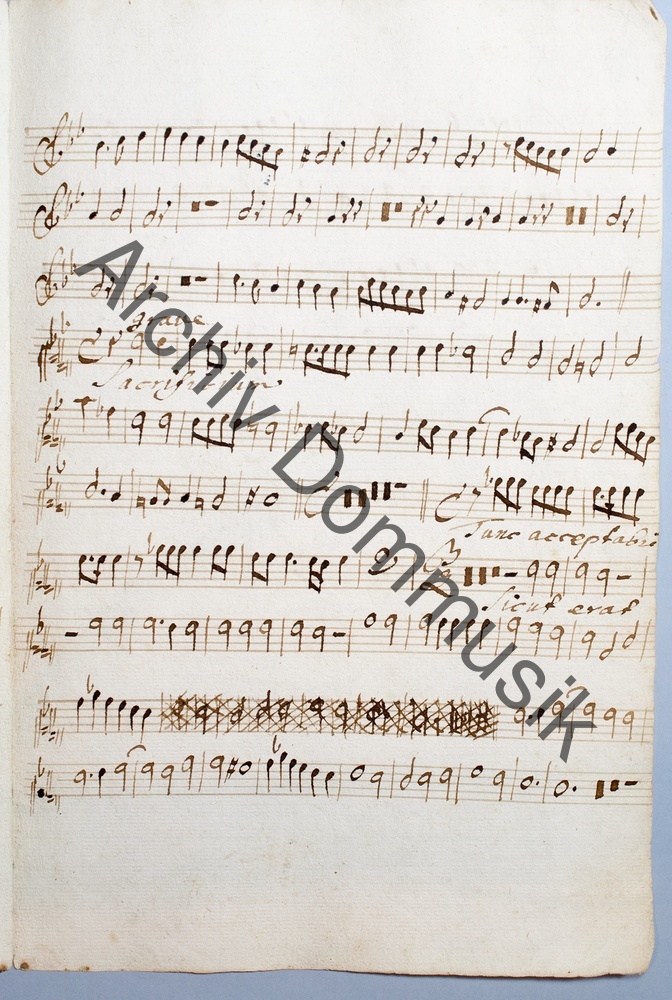 grave
Sacrificium
Tunc acceptabis
Sicut erat
Archiv Dommusik